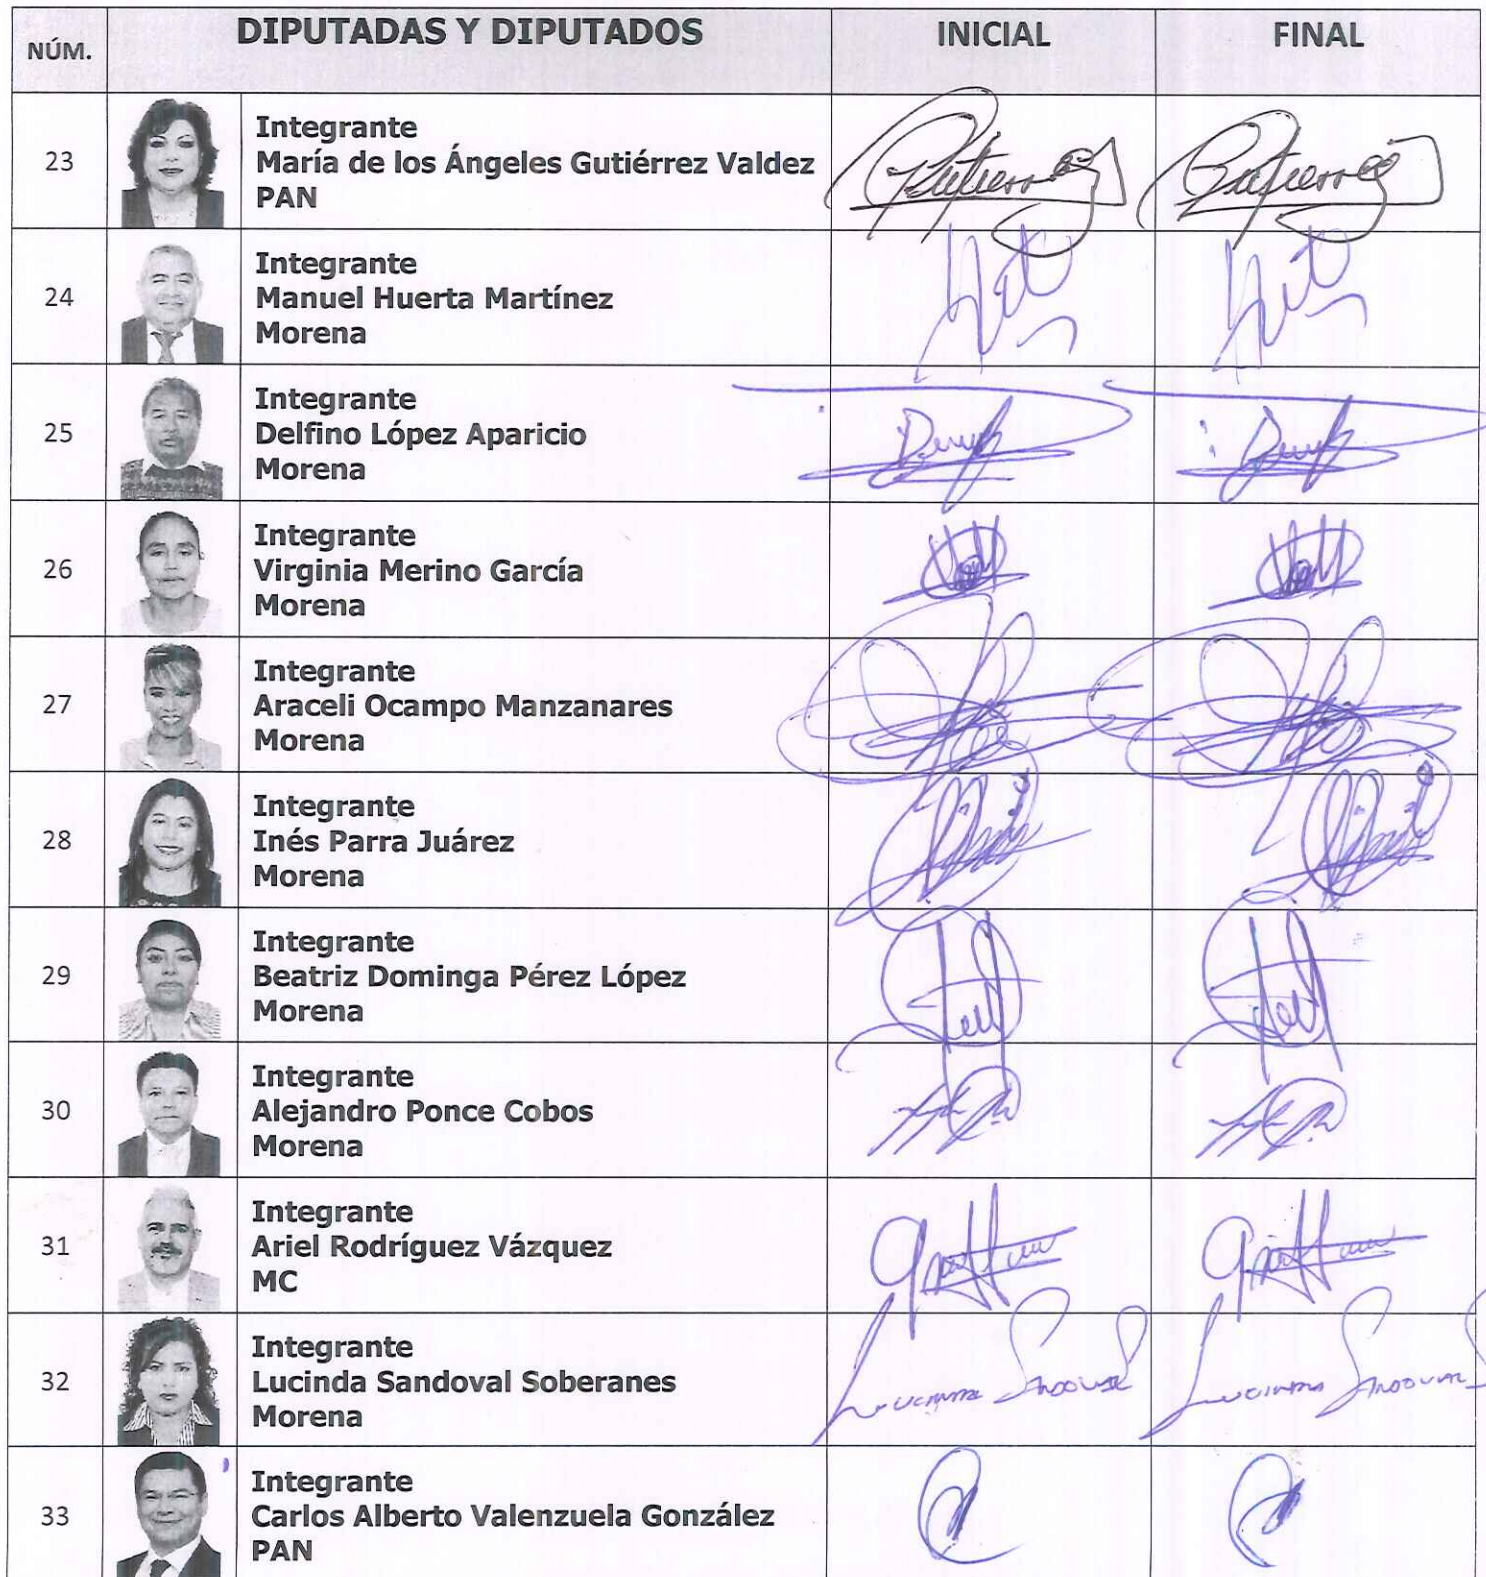 NÚM. DIPUTADAS Y DIPUTADOS INICIAL FINAL
23
Integrante
María de los Ángeles Gutiérrez Valdez
PAN
Gutierrez Gutierrez
24
Integrante
Manuel Huerta Martínez
Morena
25
Integrante
Delfino López Aparicio
Morena
26
Integrante
Virginia Merino García
Morena
27
Integrante
Araceli Ocampo Manzanares
Morena
28
Integrante
Inés Parra Juárez
Morena
29
Integrante
Beatriz Dominga Pérez López
Morena
30
Integrante
Alejandro Ponce Cobos
Morena
31
Integrante
Ariel Rodríguez Vázquez
MC
32
Integrante
Lucinda Sandoval Soberanes
Morena
Lucinda Sandoval Lucinda Sandoval
33
Integrante
Carlos Alberto Valenzuela González
PAN